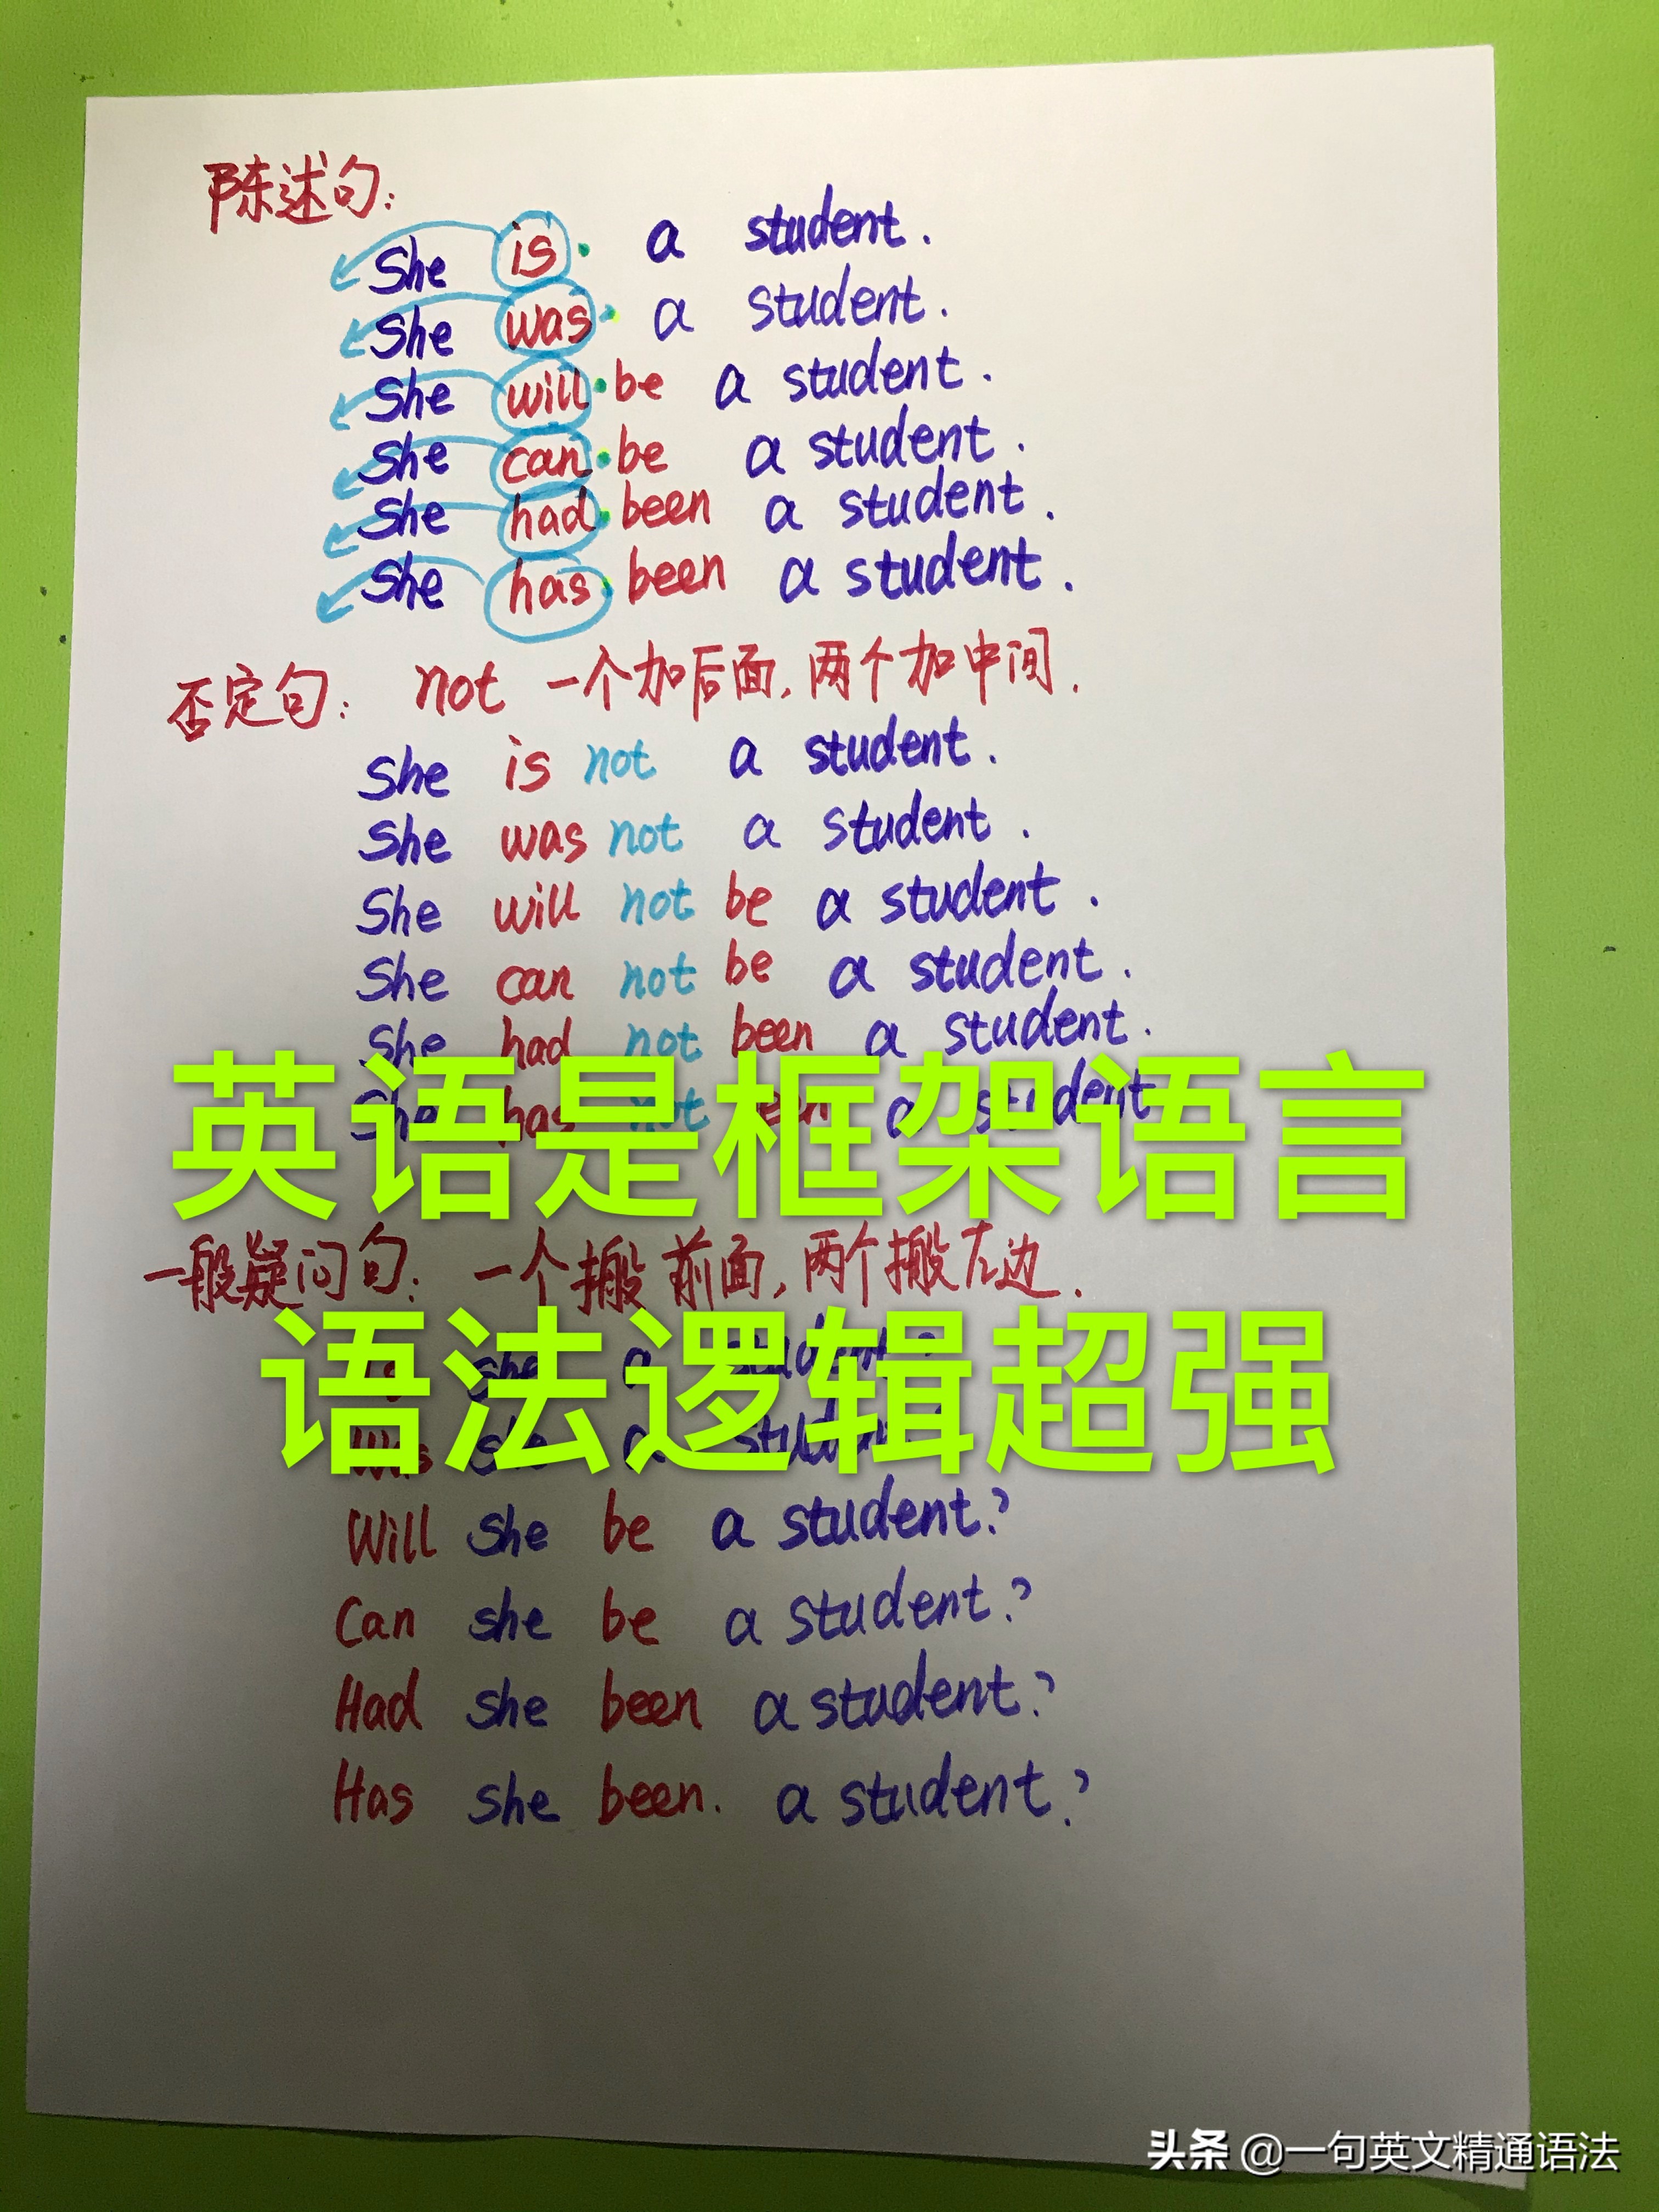 陈述句:
She is. a student.
She was. a student.
She will. be a student.
She can. be a student.
She had. been a student.
She has. been a student.
否定句: not 一个加后面,两个加中间.
She is not a student.
She was not a student.
She will not be a student.
She can not be a student.
She had not been a student.
She has not been a student
英语是框架语言
一般疑问句: 一个搬前面,两个搬左边.
Is she a student?
语法逻辑超强
Was she a student
Will she be a student?
Can she be a student?
Had she been a student?
Has she been. a student?
头条 @一句英文精通语法